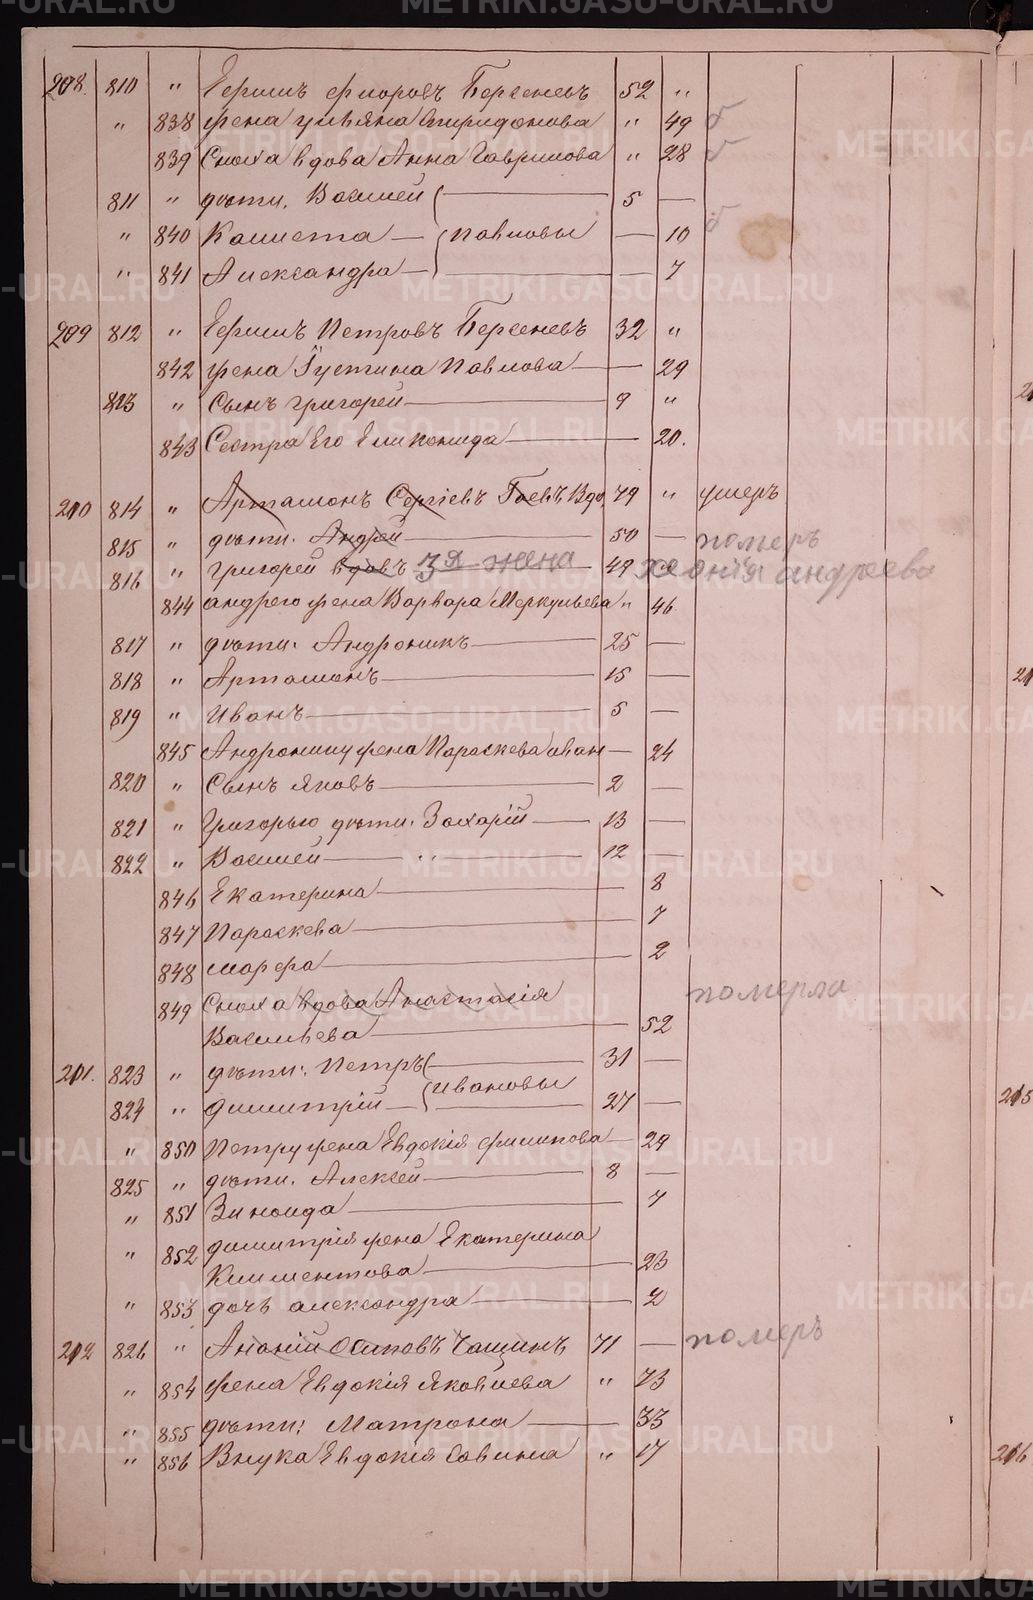 208. 810 " Ермилъ Флоровъ Берсеневъ 52 "
" 838 жена Ульяна Спиридонова " 49 б
839 Сноха вдова Анна Гаврилова " 28 б
811 " дѣти. Василий 5 —
" 840 Калиста — Павловы — 10 б
" 841 Александра — — 7
209 812 " Ермилъ Петровъ Берсеневъ 32 "
842 жена Густина Павлова — 29
813 " Сынъ Григорей 9 "
843 Сестра Его Еликонида — 20.
210 814 " Артамонъ Сергіевъ Гаевъ Вдо. 79 " умеръ
815 " дѣти. Андрей 50 — померъ
816 " Григорей вдовъ 3я жена 49 Хеонія андреева
844 андрею жена Варвара Меркульева " 46
817 " дѣти. Андроникъ 25 —
818 " Артамонъ 15 —
819 " Иванъ 5 —
845 Андронику жена Параскева иван — 24
820 " Сынъ яковъ 2 —
821 " Григорью дѣти. Захарій 13 —
822 " Василей 12 —
846 Екатерина 8
847 Параскева 7
848 марфа 2
849 Сноха вдова Анастасія померла
Васильева 52
211. 823 " дѣти: Петръ 31 —
824 " димитрій — Ивановы 27 —
" 850 Петру жена Евдокія филипова — 29
825 " дѣти. Алексей 8 —
" 851 Зиноида 7
" 852 димитрія жена Екатерина
Климентова 23
" 853 дочь александра 2
212 826 " Ананій Осиповъ Чащинъ 71 — померъ
" 854 жена Евдокія Яковлева " 73
" 855 дѣти: Матрона 33
" 856 Внука Евдокія Савина " 17
215
216
METRIKI.GASO-URAL.RU